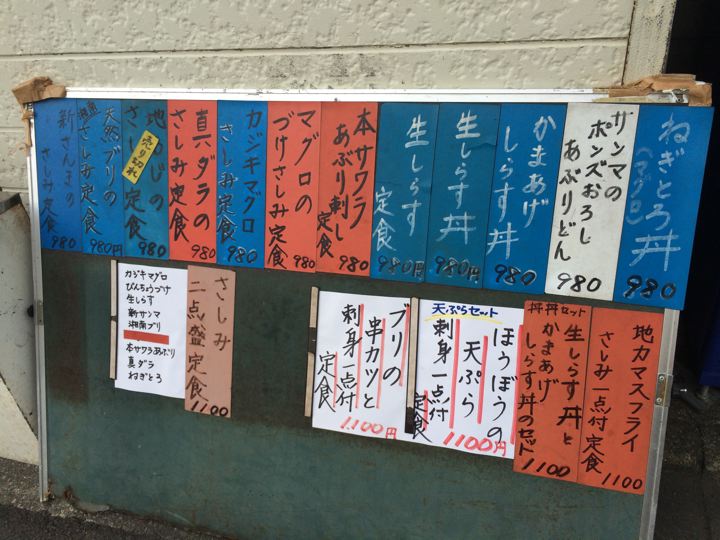 ねぎとろ丼
(マグロ)
980
サンマの
ポンズおろし
あぶりどん
980
かまあげ
しらす丼
980
生しらす丼
980円
生しらす
定食
980円
本サワラ
あぶり刺し
定食
980
マグロの
づけさしみ定食
980
カジキマグロ
さしみ定食
980
真ダラの
さしみ定食
980
さしみ定食
980
売り切れ
湘南
天然ブリの
さしみ定食
980円
新さんまの
さしみ定食
980
地カマスフライ
さしみ一点付定食
1100
丼丼セット
生しらす丼と
かまあげ
しらす丼のセット
1100
天ぷらセット
ほうぼうの
天ぷら
刺身一点付
定食
1100円
ブリの
串カツと
刺身一点付
定食
1.100円
さしみ
二点盛定食
1100
カジキマグロ
びんちょうづけ
生しらす
新サンマ
湘南ブリ
本サワラあぶり
真ダラ
ねぎとろ